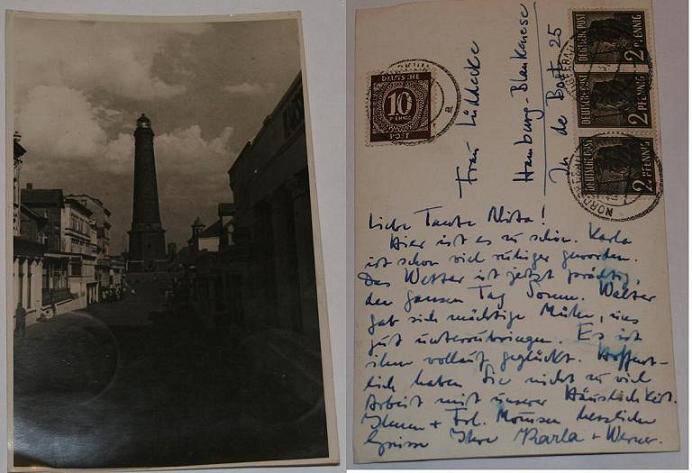 DEUTSCHE
10
PFENNIG
POST
DEUTSCHE POST
2 PFENNIG
DEUTSCHE POST
2 PFENNIG
DEUTSCHE POST
2 PFENNIG
Frau
Hamburg-Blankenese
In de Bost 25
Liebe Tante Mita!
Hier ist es so schön. Karla
ist schon viel ruhiger geworden.
Das Wetter ist jetzt prächtig,
den ganzen Tag Sonne. Walter
gab sich mächtige Mühe, uns
gut unterzubringen. Es ist
ihm vollauf geglückt. Hoffent-
lich haben Sie nicht zu viel
Arbeit mit unserer Häuslichkeit.
Ihnen + Frl. Momsen herzliche
Grüsse Ihre Karla + Werner.